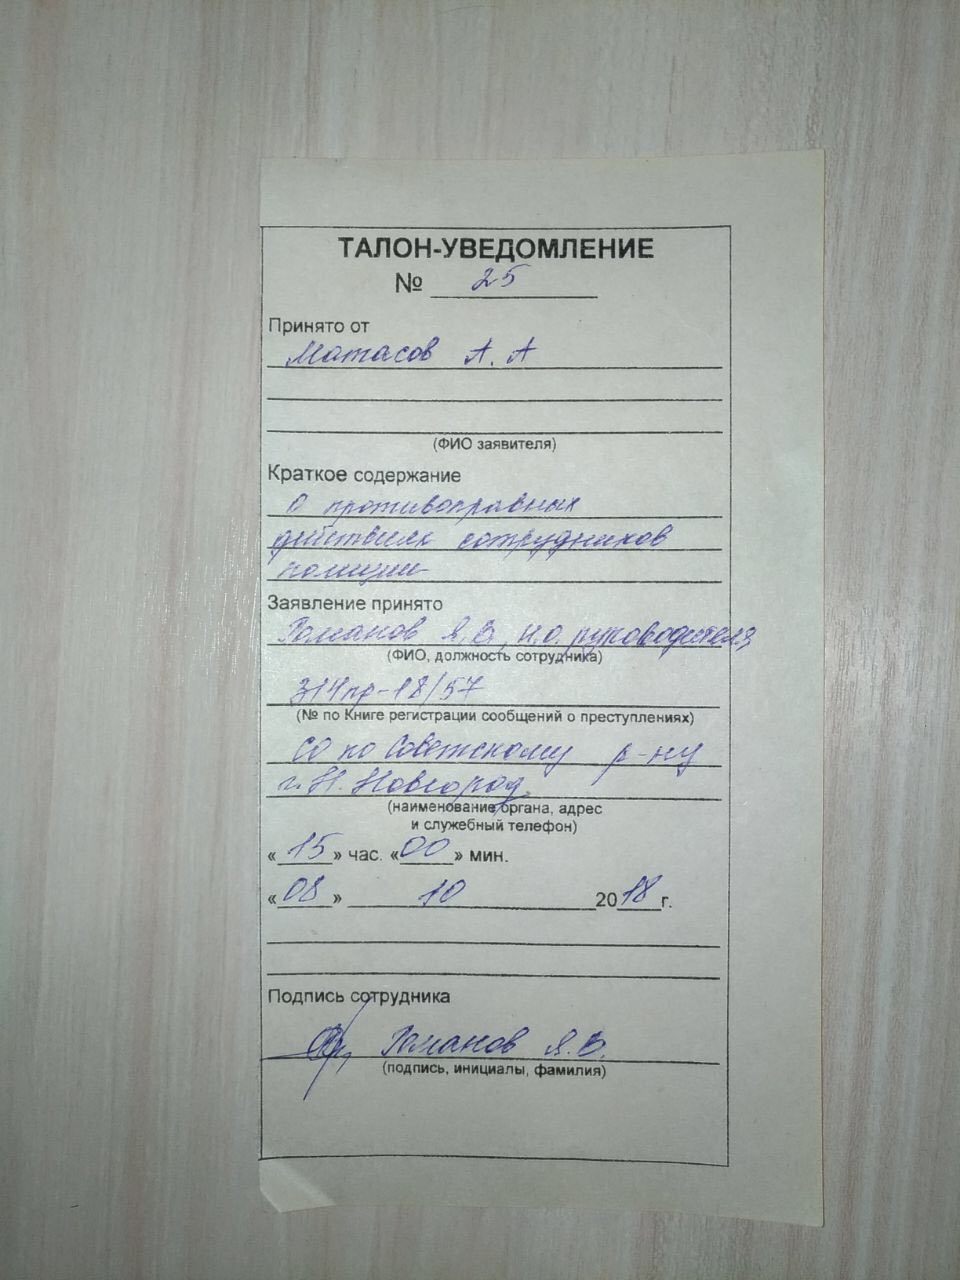 ТАЛОН-УВЕДОМЛЕНИЕ
№ 25
Принято от
Матасов А. А
(ФИО заявителя)
Краткое содержание
О противоправных
действиях сотрудников
полиции
Заявление принято
Романов Я.В., и.о. руководителя
(ФИО, должность сотрудника)
314пр-18/57
(№ по Книге регистрации сообщений о преступлениях)
СО по Советскому р-ну
г. Н. Новгород
(наименование органа, адрес
и служебный телефон)
«15» час. «00» мин.
«08» 10 2018 г.
Подпись сотрудника
Романов Я.В.
(подпись, инициалы, фамилия)